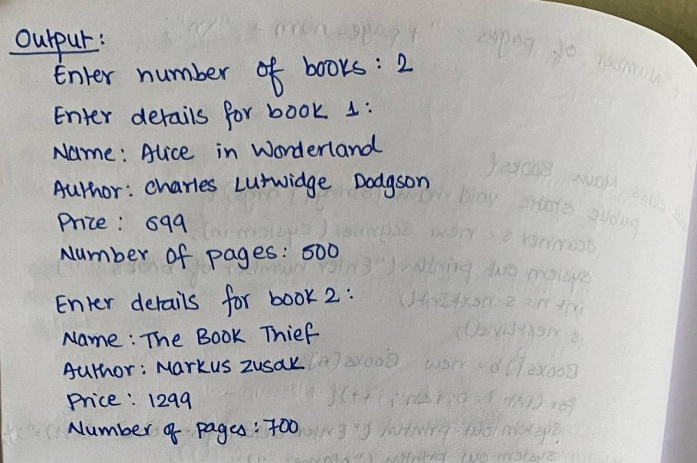 Output:
Enter number of books: 2
Enter details for book 1:
Name: Alice in Wonderland
Author: Charles Lutwidge Dodgson
Price: 699
Number of pages: 500
Enter details for book 2:
Name: The Book Thief
Author: Markus Zusak
Price: 1299
Number of pages: 700